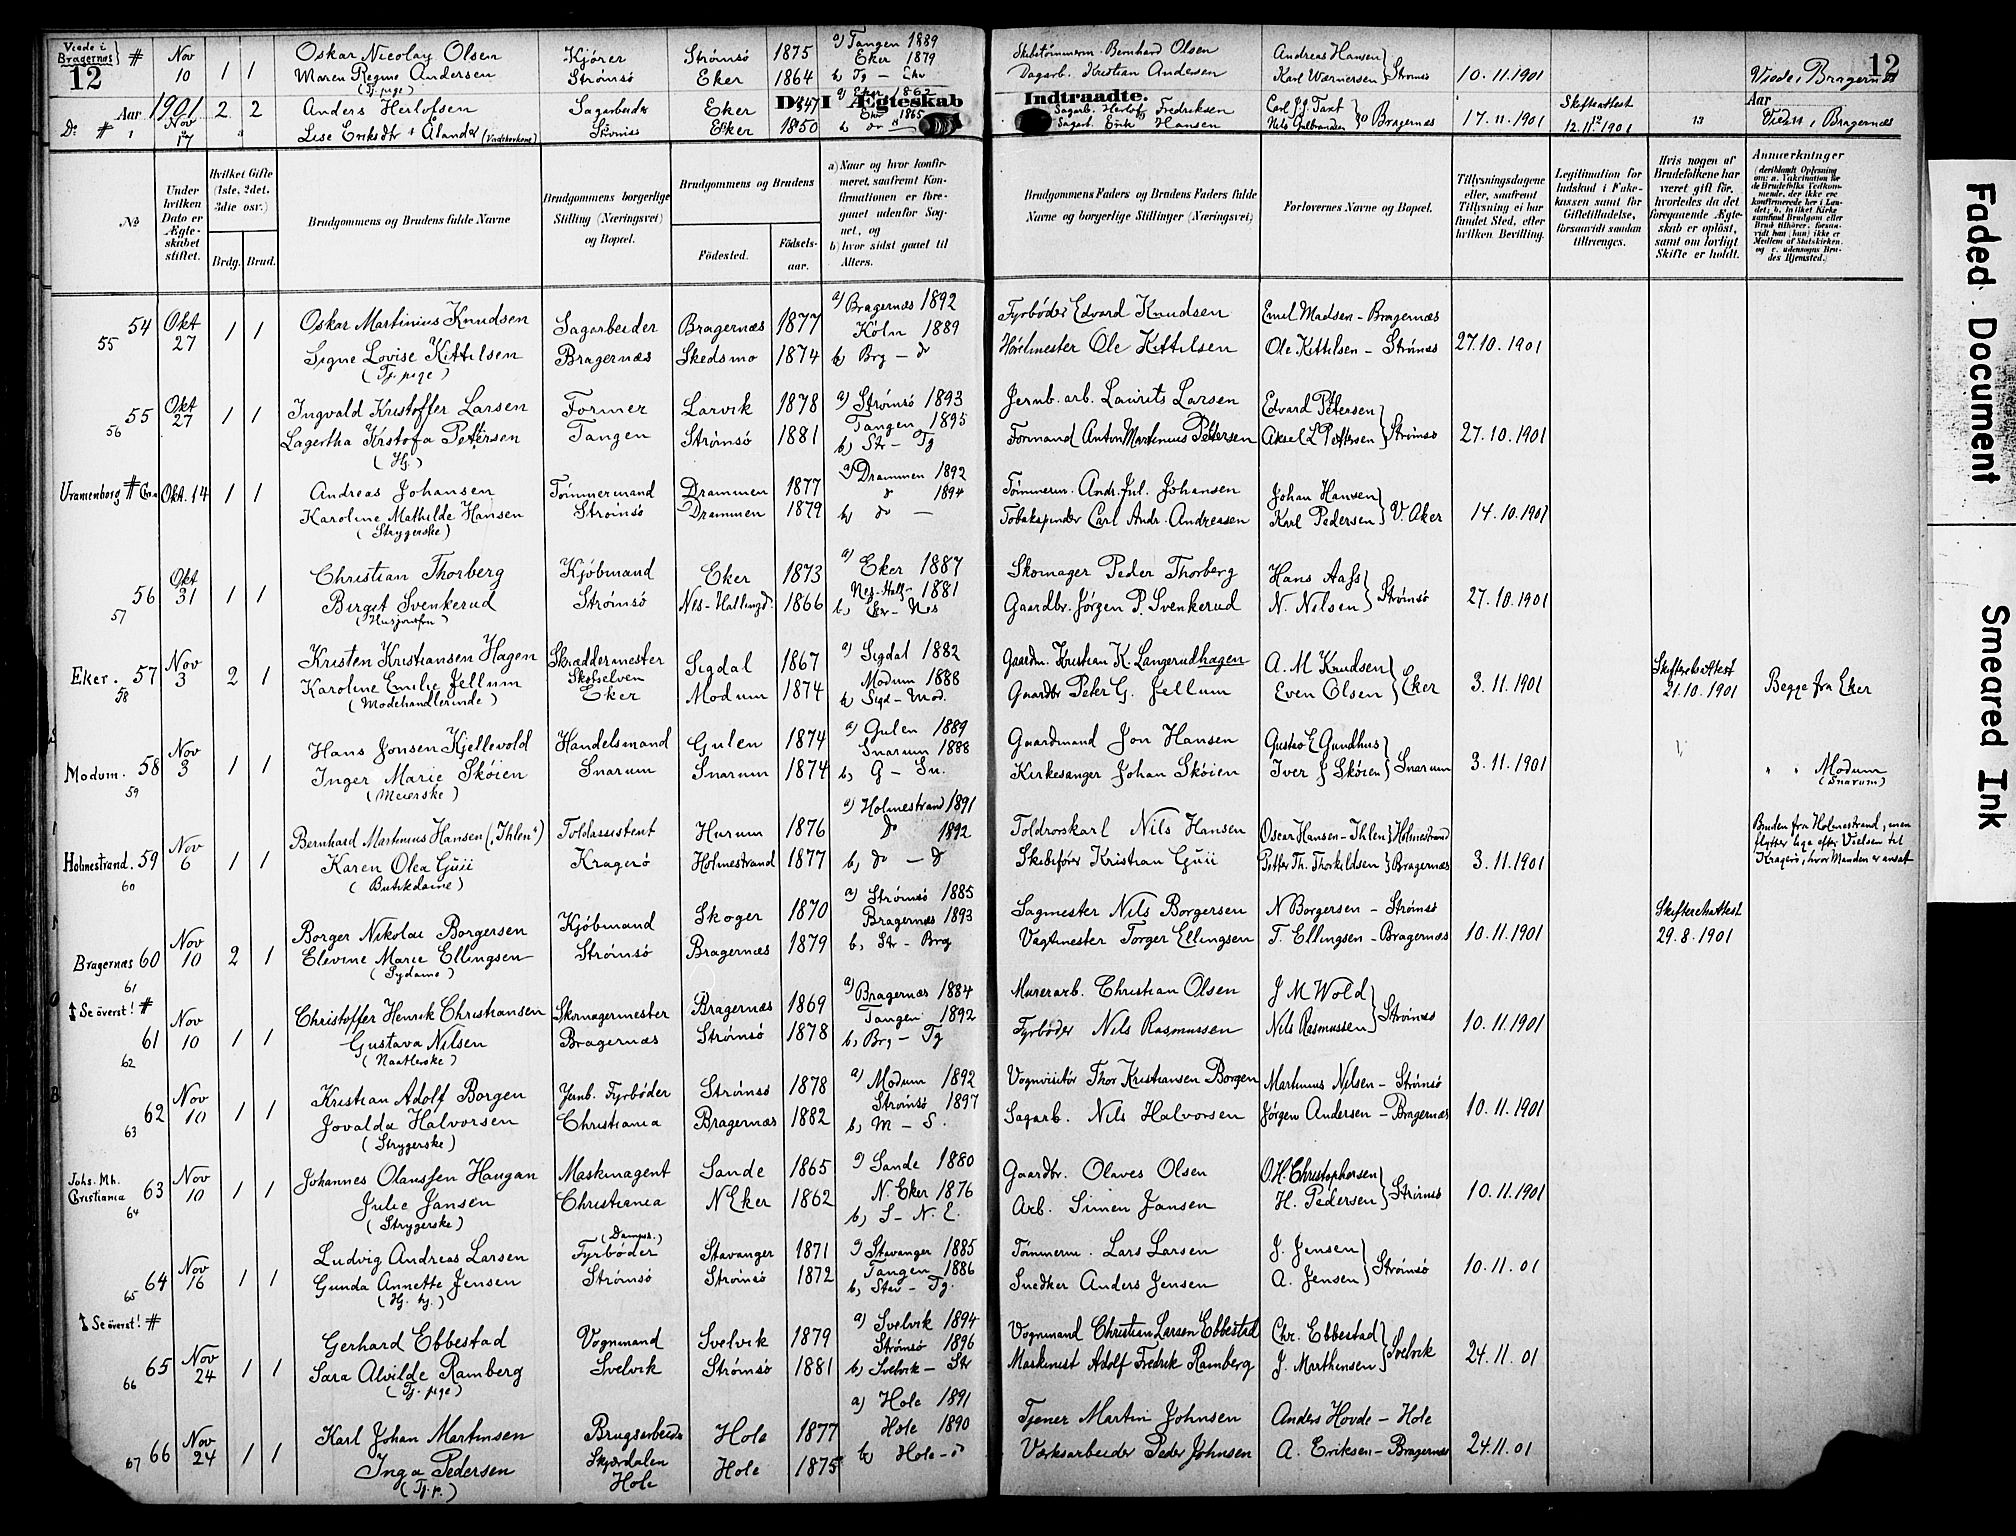 Viede i Bragernæs # Nov 10 1 1 Oskar Nicolay Olsen Kjører Strømsø 1875 a) Tangen 1889 Skibstømmerm. Bernhard Olsen Andreas Hansen
12 Maren Regine Andersen Strømsø Eker 1864 Eker 1879 Dagarb. Kristian Andersen Karl Wærnersen } Strømsø 10.11.1901 Viede i Bragernæs 12
(Tj. pige) b) Tg –
Aar 1901 2 2 Anders Herlofsen Sagarbeider Eker 1847 a) Eker 1862 Sagarb. Herlof Fredriksen Carl J.J. Taxt Skifteattest Aar
Do # Nov 17 Lise Eriksdtr Ålander (Vadskerkone) Eker 1850 Eker 1865 Sagarb. Erik Hansen Nils Gulbrandsen } Bragernæs 17.11.1901 12.11.1901 13 Viede i Bragernæs
D. I Ægteskab Indtraadte.
No
Under hvilken Dato er Ægteskabet stiftet.
Hvilket Gifte (1ste, 2det, 3die osv.)
Brdg. Brud.
Brudgommens og Brudens fulde Navne
Brudgommens borgerlige Stilling (Næringsvei) og Bopæl.
Brudgommens og Brudens
Födested. Födsels-aar.
a) Naar og hvor konfirmeret, saafremt Konfirmationen er foregaaet udenfor Sognet, og
b) hvor sidst gaaet til Alters.
Brudgommens Faders og Brudens Faders fulde Navne og borgerlige Stillinger (Næringsvei)
Forlovernes Navne og Bopæl.
Tillysningsdagene eller, saafremt Tillysning ei har fundet Sted, efter hvilken Bevilling.
Legitimation for Indskud i Enkekassen samt for Giftetilladelse, forsaavidt saadan tiltrænges.
Hvis nogen af Brudefolkene har været gift før, hvorledes da det foregaaende Ægteskab er oplöst, samt om lovligt Skifte er holdt.
Anmærkninger
(deriblandt Oplysning om: a. Vakcination for de Brudefolks Vedkommende, der ikke ere konfirmerede her i Landet; b. hvilket Kirkesamfund Brudgom eller Brud tilhörer, forsaavidt han (hun) ikke er Medlem af Statskirken, og c. udensogns Brudes Hjemsted.)
54 Okt 1 1 Oskar Martinius Knudsen Sagarbeider Bragernæs 1877 a) Bragernæs 1892 Fyrbøder Edvard Knudsen Emil Madsen – Bragernæs
55 27 Signe Lovise Kittilsen Bragernæs Skedsmo 1874 Köln 1889 Ole Kittilsen Ole Kittilsen – Strømsø 27.10.1901
(Tj. pige) b) Brg – do
55 Okt 1 1 Ingvald Kristoffer Larsen Former Larvik 1878 a) Strømsø 1893 Jernb. arb. Laurits Larsen Edvard Petersen
56 27 Lagertha Krstofa Petersen Tangen Strømsø 1881 Tangen 1895 Formand Anton Martinius Pettersen Aksel L Pettersen } Strømsø 27.10.1901
(Hj.) b) Str – Tg
Uranienborg # Chra Okt. 14 1 1 Andreas Johansen Tømmermand Drammen 1877 a) Drammen 1892 Tømmerm. Andr. Jul. Johansen Johan Hansen
Karoline Mathilde Hansen Strømsø Drammen 1879 do 1894 Tobakspinder Carl Andr. Andreasen Karl Pedersen } V. Aker 14.10.1901
(Strygerske) b) do –
56 Okt 1 1 Christian Thorberg Kjøbmand Eker 1873 a) Eker 1887 Skomager Peder Thorberg Hans Aass
57 31 Birgit Svenkerud Strømsø Nes-Hallingd. 1866 Nes-Hall. 1881 Gaardbr. Jørgen P. Svenkerud N. Nilsen } Strømsø 27.10.1901
(Husjomfru) b) Ek – Nes
Eker. 57 Nov 2 1 Kristen Kristiansen Hagen Skræddermester Sigdal 1867 a) Sigdal 1882 Gaardm. Kristian K. Langerudhagen A. M Knudsen Skifteretsattest
58 3 Karoline Emilie Jellum Skotselven Eker Modum 1874 Modum 1888 Gaardbr Peter G. Jellum Even Olsen } Eker 3.11.1901 21.10.1901 Begge fra Eker
(Modehandlerinde) b) Sigd – Mod.
Modum. 58 Nov 1 1 Hans Jonsen Kjellevold Handelsmand Gulen 1874 a) Gulen 1889 Gaardmand Jon Hansen Gustav E Gundhus
59 3 Inger Marie Skøien Snarum Snarum 1874 Snarum 1888 Kirkesanger Johan Skøien Iver J Skøien } Snarum 3.11.1901 " " Modum (Snarum)
(Meierske) b) G – Sn.
Holmestrand. 59 Nov 1 1 Bernhard Martinius Hansen ("Ihlen") Toldassistent Hurum 1876 a) Holmestrand 1891 Toldrorskarl Nils Hansen Oscar Hansen-Ihlen } Holmestrand Bruden fra Holmestrand, men
60 6 Karen Olea Guii Kragerø Holmestrand 1877 do 1892 Skibsfører Kristian Guii Petter Th. Thorkildsen } Bragernæs 3.11.1901 flytter lige efter Vielsen til
(Butikdame) b) do – do Kragerø, hvor Manden er ansat
Bragernæs 60 Nov 2 1 Borger Nikolai Borgersen Kjøbmand Skoger 1870 a) Strømsø 1885 Sagmester Nils Borgersen N Borgersen – Strømsø Skifteretsattest
61 10 Elevine Marie Ellingsen Strømsø Bragernæs 1879 Bragernæs 1893 Vagtmester Torger Ellingsen T. Ellingsen – Bragernæs 10.11.1901 29.8.1901
(Sydame) b) Str – Brg
↑ Se överst! #
61 Nov 1 1 Christoffer Henrik Christiansen Skomagermester Bragernæs 1869 a) Bragernæs 1884 Murerarb. Christian Olsen J M Wold
62 10 Gustava Nilsen Bragernæs Strømsø 1878 Tangen 1892 Fyrbøder Nils Rasmussen Nils Rasmussen } Strømsø 10.11.1901
(Naatlerske) b) Brg – Tg
62 Nov 1 1 Kristian Adolf Borgen Jernb. Fyrbøder Strømsø 1878 a) Modum 1892 Vognvisitør Thor Kristiansen Borgen Martinius Nilsen – Strømsø
63 10 Jovalda Halvorsen Christiania Bragernæs 1882 Strømsø 1897 Sagarb. Nils Halvorsen Jørgen Andersen – Bragernæs 10.11.1901
(Strygerske) b) M – S.
Johs. Mh. Christiania 63 Nov 1 1 Johannes Olaussen Haugan Maskinagent Sande 1865 a) Sande 1880 Gaardbr. Olaves Olsen O. H. Christophersen
64 10 Julie Jansen Christiania N Eker 1862 N. Eker 1876 Arb. Simen Jansen H. Pedersen } Strømsø 10.11.1901
(Strygerske) b) S – N. E.
64 Nov 1 1 Ludvig Andreas Larsen (Dampsk.) Fyrbøder Stavanger 1871 a) Stavanger 1885 Tømmerm. Lars Larsen J. Jensen
65 16 Gunda Annette Jensen Strømsø Strømsø 1872 Tangen 1886 Snedker Anders Jensen A. Jensen } Strømsø 10.11.01
(Hj. hj.) b) Stav – Tg.
↑ Se överst! #
65 Nov 1 1 Gerhard Ebbestad Vognmand Svelvik 1879 a) Svelvik 1894 Vognmand Christian Larsen Ebbestad Chr. Ebbestad
66 24 Sara Alvilde Ramberg Svelvik Strømsø 1881 Strømsø 1896 Maskinist Adolf Fredrik Ramberg J. Marthinsen } Svelvik 24.11.01
(Tj. pige) b) Svelvik – Str
66 Nov 1 1 Karl Johan Martinsen Brugsarbeider Hole 1877 a) Hole 1891 Tjener Martin Johnsen Anders Hovde – Hole
67 24 Inga Pedersen Skjærdalen Hole Hole 1875 Hole 1890 Værksarbeider Peder Johnsen A. Eriksen – Bragernæs 24.11.01
(Tj. p.) b) Hole – do
Faded Document
Smeared Ink